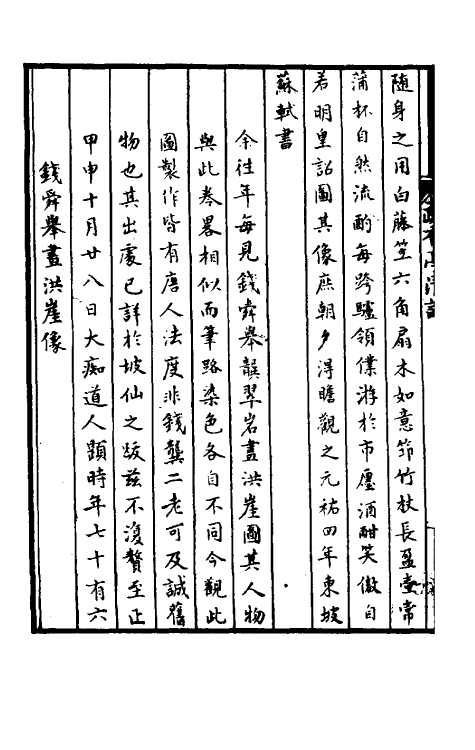 隨身之用白藤笠六角扇木如意筇竹杖長盈壺常
滿杯自然流酌每跨驢領僕游於市廛酒酣笑傲自
若明皇詔圖其像庶朝夕得瞻觀之元祐四年東坡
蘇軾書
余往年每見錢舜舉龔翠岩畫洪崖圖其人物
與此卷畧相似而筆路染色各自不同今觀此
圖製作皆有唐人法度非錢龔二老可及誠舊
物也其出處已詳於坡仙之跋茲不復贅至正
甲申十月廿八日大痴道人顯時年七十有六
錢舜舉畫洪崖像